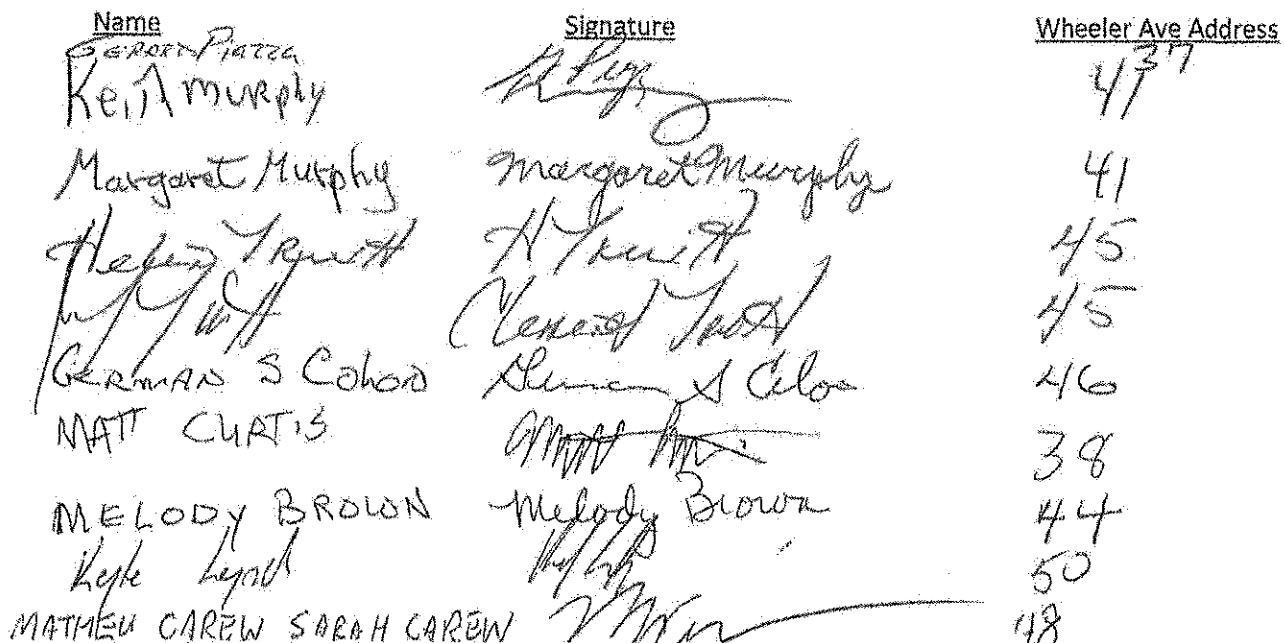 Name Signature Wheeler Ave Address
Piazza 37
Keith Murphy 41
Margaret Murphy Margaret Murphy 41
Helen Truitt H Truitt 45
Truitt 45
GERMAN S COLON German S Colon 46
MATT CURTIS Matt 38
MELODY BROWN Melody Brown 44
Kyle Lynch 50
MATHEW CAREW SARAH CAREW 48